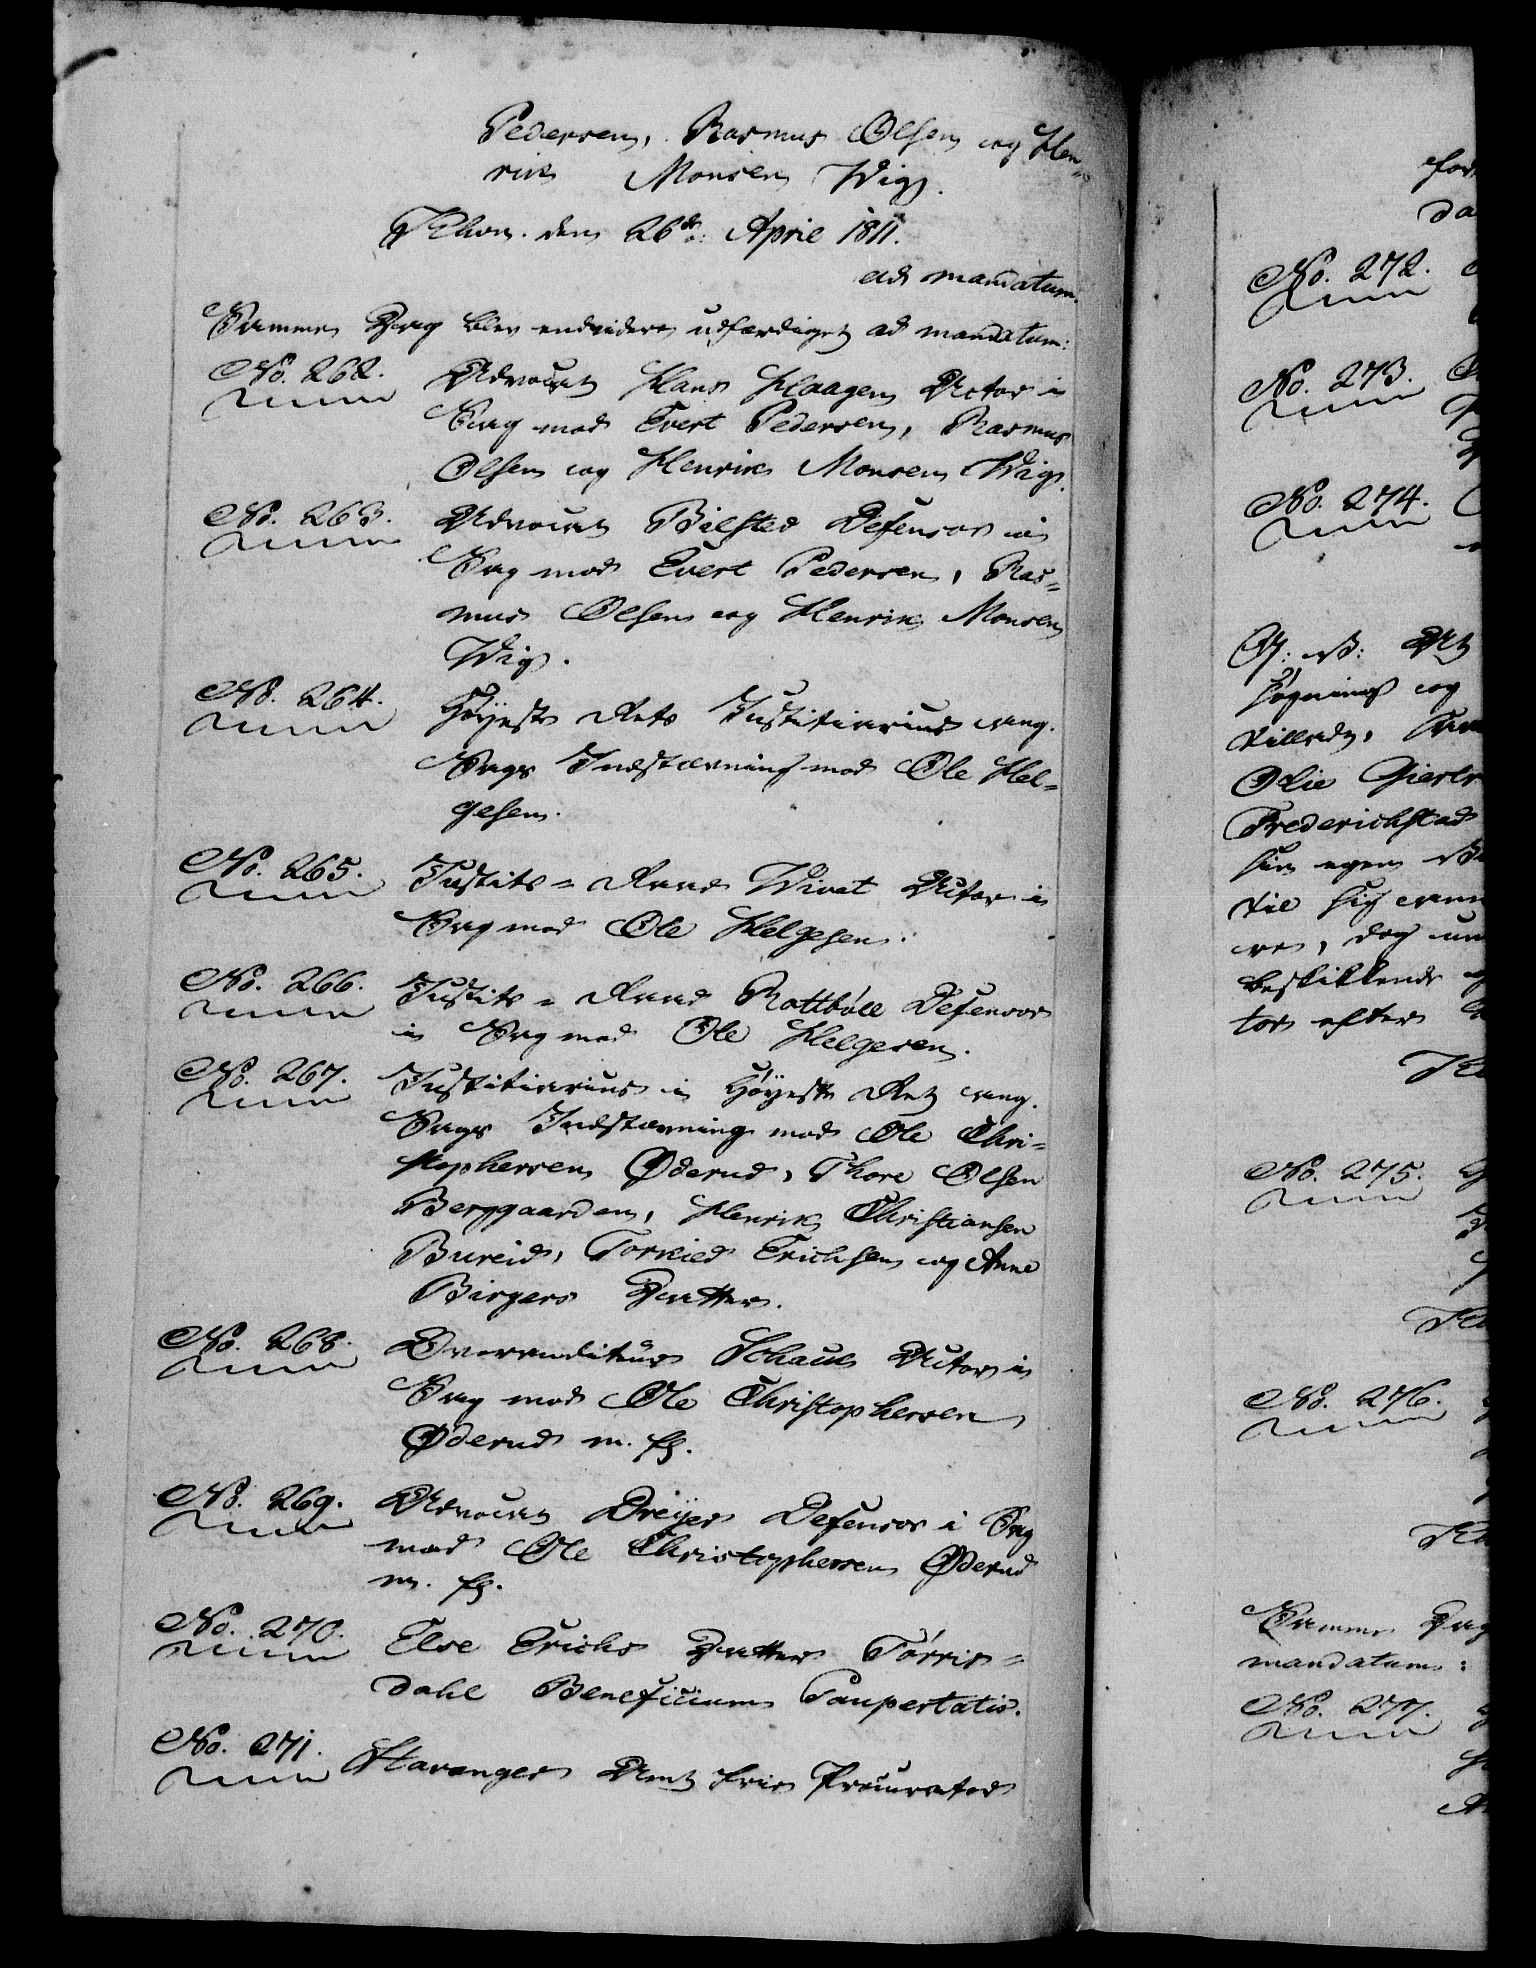 Pedersen, Rasmus Olsen og Hen-
rich Monsen Wig.
Khvn. den 26de April 1811.
ad mandatum.
Samme Dag blev endvidere udfærdiget ad mandatum:
No. 262. Advocat Hans Haagen Actor i
Sag mod Evert Pedersen, Rasmus
Olsen og Henrik Monsen Wig.
No. 263. Advocat Bilsted Defensor i
Sag mod Evert Pedersen, Ras-
mus Olsen og Henrik Monsen
Wig.
No. 264. Høyeste Rets Justitiarius ang.
Sags Indstævning mod Ole Hel-
gesen.
No. 265. Justits-Raad Wivet Actor i
Sag mod Ole Helgesen.
No. 266. Justits-Raad Rottbøll Defensor
i Sag mod Ole Helgesen.
No. 267. Justitiarius i Høyeste Ret ang.
Sags Indstævning mod Ole Chri-
stophersen Øderud, Thore Olsen
Berggaarden, Henrik Christiansen
Bureid, Torkied Erichsen og Anne
Birgers Datter.
No. 268. Overauditeur Schack Actor i
Sag mod Ole Christophersen
Øderud m. fl.
No. 269. Advocat Dreyer Defensor i Sag
mod Ole Christophersen Øderud
m. fl.
No. 270. Else Erichs Datter Tørris-
dahl Beneficium Paupertatis.
No. 271. Stavanger Amt frie Procurator
for
da
No. 272.
No. 273.
No. 274.
søgning og
tillade,
Olie
Frederichstad
sin egen
til sig
dog
beskikkende
tor efter
No. 275.
No. 276.
Samme Dag
mandatum:
No. 277.